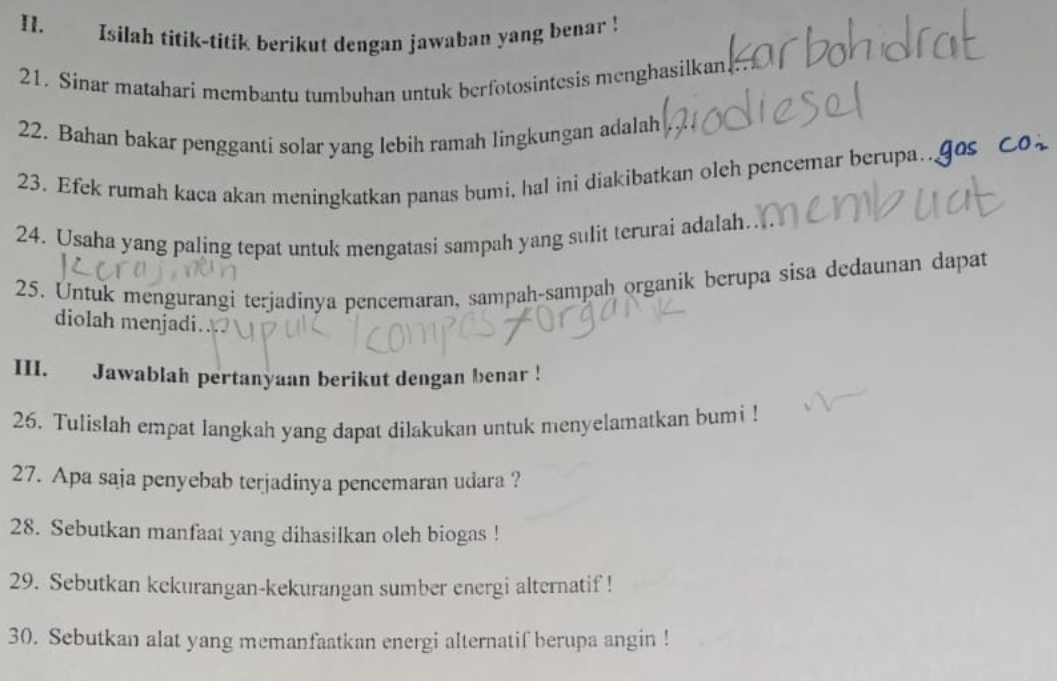 II. Isilah titik-titik berikut dengan jawaban yang benar !
21. Sinar matahari membantu tumbuhan untuk berfotosintesis menghasilkan.... karbohidrat
22. Bahan bakar pengganti solar yang lebih ramah lingkungan adalah.... biodiesel
23. Efek rumah kaca akan meningkatkan panas bumi, hal ini diakibatkan oleh pencemar berupa... gas CO₂
24. Usaha yang paling tepat untuk mengatasi sampah yang sulit terurai adalah.... membuat
kerajinan
25. Untuk mengurangi terjadinya pencemaran, sampah-sampah organik berupa sisa dedaunan dapat
diolah menjadi.... pupuk kompos / organik
III. Jawablah pertanyaan berikut dengan benar !
26. Tulislah empat langkah yang dapat dilakukan untuk menyelamatkan bumi !
27. Apa saja penyebab terjadinya pencemaran udara ?
28. Sebutkan manfaat yang dihasilkan oleh biogas !
29. Sebutkan kekurangan-kekurangan sumber energi alternatif !
30. Sebutkan alat yang memanfaatkan energi alternatif berupa angin !